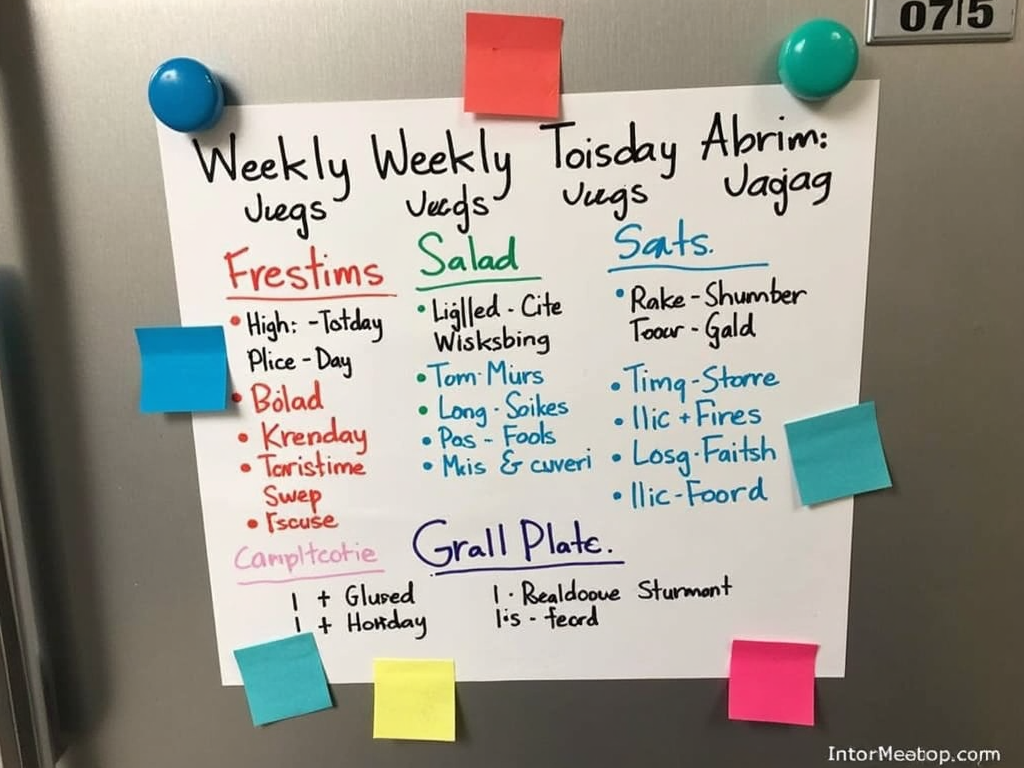 07/5
Weekly Weekly Toisday Abrim:
Juegs Vecds Juegs Jagag
Frestims
• High: -Totday
Plice - Day
• Bolad
• Krenday
• Taristime
Swep
• Iscuse
Salad
• Liglled - Cite
Wisksbing
• Tom-Murs
• Long - Soikes
• Pos - Fools
• Mris & cuveri
Sats.
• Rake - Shumber
Toour - Gald
• Timq - Storre
• Ilic + Fires
• Losg - Faitsh
• Ilic - Foord
Campltcotie
1 + Glused
1 + Honday
Grall Plate.
1 • Realdooue Sturmont
1•s - feord
IntorMeatop.com